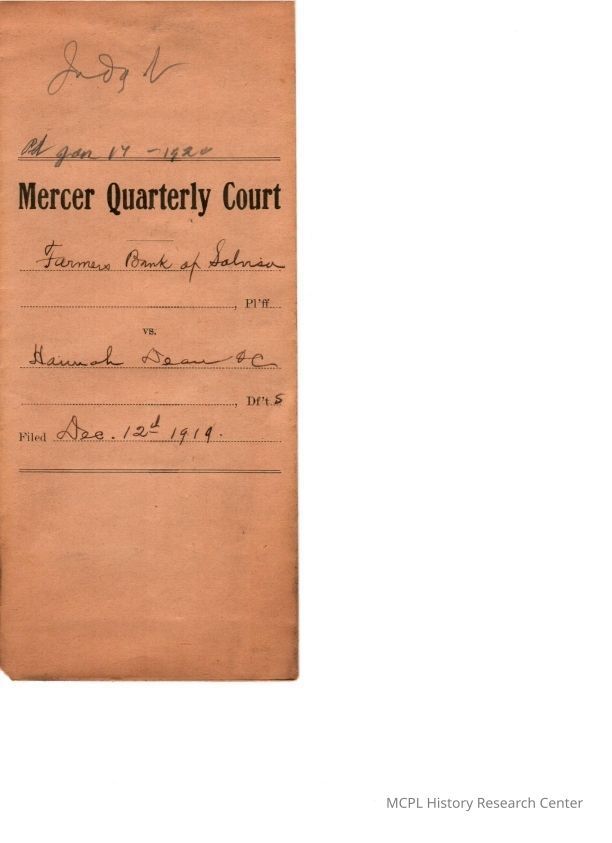 Judg
Pd Jan 17 - 1920
Mercer Quarterly Court
Farmers Bank of Salvisa
, Pl'ff.
vs.
Hannah Dean &C
, Df't.s
Filed Dec. 12d 1919.
MCPL History Research Center